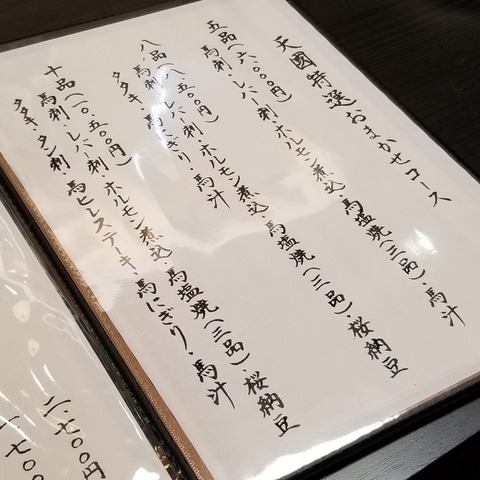 天國特選おまかせコース
五品(六、〇〇〇円)
馬刺・レバー刺・ホルモン煮込・馬塩焼(三品)・馬汁
八品(八、五〇〇円)
馬刺・レバー刺・ホルモン煮込・馬塩焼(三品)桜納豆
タタキ・馬にぎり・馬汁
十品(一〇、五〇〇円)
馬刺・レバー刺・ホルモン煮込 馬塩焼(三品)・桜納豆
タタキ・タン刺・馬ヒレステーキ・馬にぎり・馬汁
二、七〇〇円
一、七〇〇